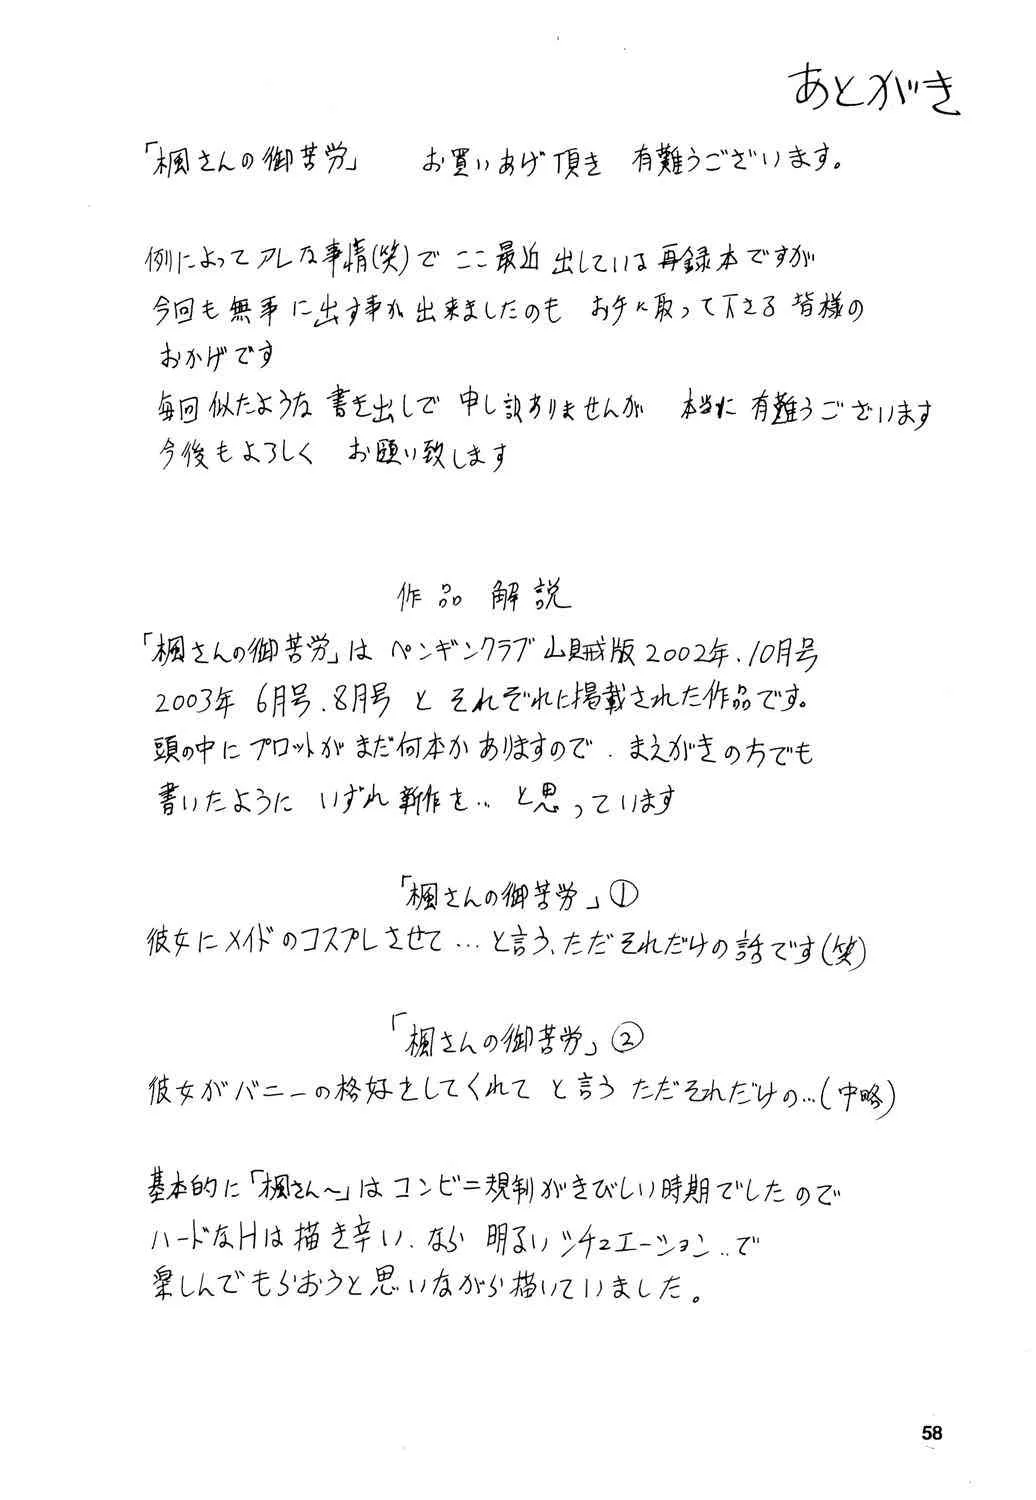 あとがき
「楓さんの御苦労」　お買いあげ頂き　有難うございます。
例によってアレな事情(笑)で ここ最近 出している再録本ですが
今回も無事に出す事が出来ましたのも　お手に取って下さる皆様の
おかげです
毎回似たような書き出しで 申し訳ありませんが　本当に有難うございます
今後もよろしく　お願い致します
作品 解説
「楓さんの御苦労」は ペンギンクラブ山賊版2002年.10月号
2003年 6月号.8月号 と それぞれに掲載された作品です。
頭の中にプロットがまだ何本かありますので．まえがきの方でも
書いたように いずれ新作を… と思っています
「楓さんの御苦労」①
彼女にメイドのコスプレさせて…と言う、ただそれだけの話です(笑)
「楓さんの御苦労」②
彼女がバニーの格好をしてくれて と言う ただそれだけの…(中略)
基本的に「楓さん～」はコンビニ規制がきびしい時期でしたので
ハードなHは描き辛い．なら 明るいシチュエーション‥で
楽しんでもらおうと思いながら描いていました。
58